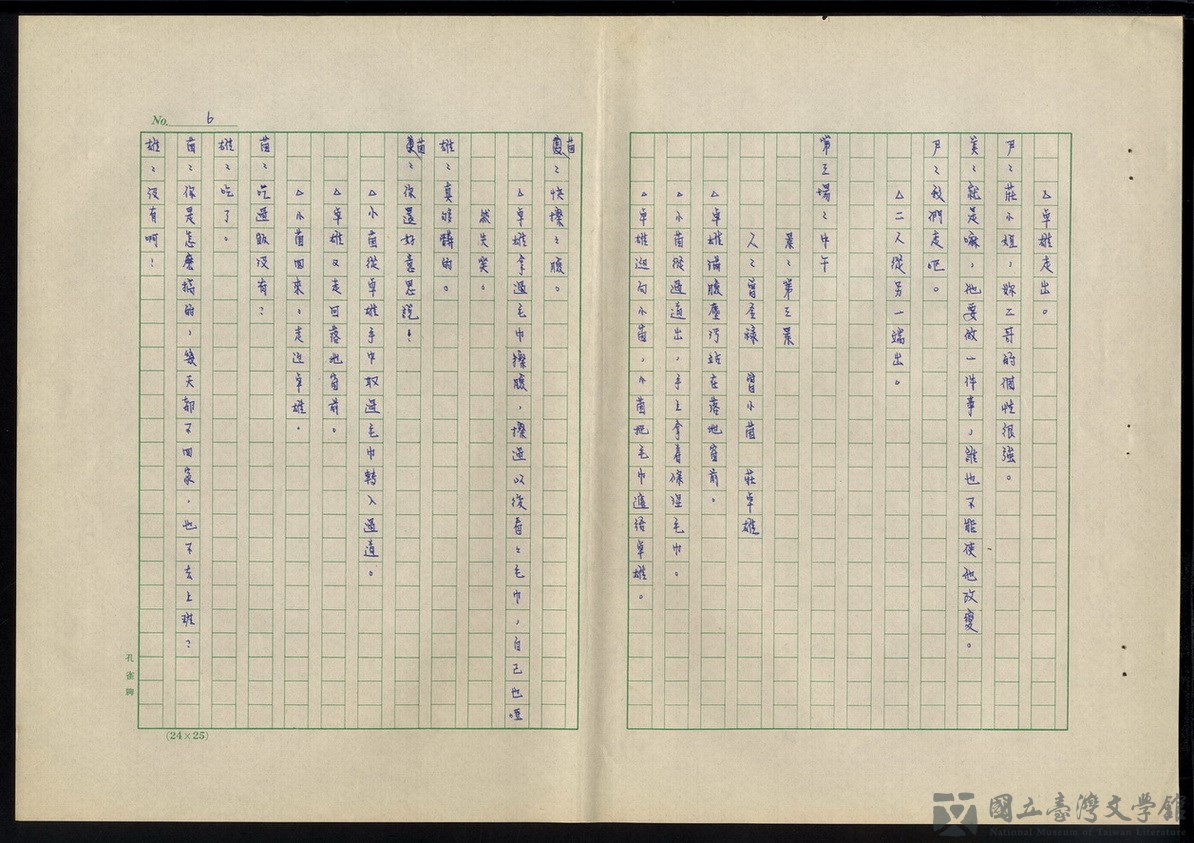 △卓雄走出。
尹:莊小姐,妳二哥的個性很強。
美:就是嘛,他要做一件事,誰也不能使他改變。
尹:我們走吧。
△二人從另一端出。
第三場:中午
景:第三景
人:曾金祿 曾小茵 莊卓雄
△卓雄滿臉塵污站在落地窗前。
△小茵從過道出,手上拿着條溼毛巾。
△卓雄迎向小茵,小茵把毛巾遞給卓雄。
No. 6
茵:快擦擦臉。
△卓雄拿過毛巾擦臉,擦過以後看看毛巾,自己也啞
然失笑。
雄:真夠髒的。
茵:你還好意思說!
△小茵從卓雄手中取過毛巾轉入過道。
△卓雄又走回落地窗前。
△小茵回來,走近卓雄。
茵:吃過飯沒有?
雄:吃了。
茵:你是怎麼搞的,幾天都不回家,也不去上班?
雄:沒有啊!
孔雀牌
(24×25)
國立臺灣文學館
National Museum of Taiwan Literature